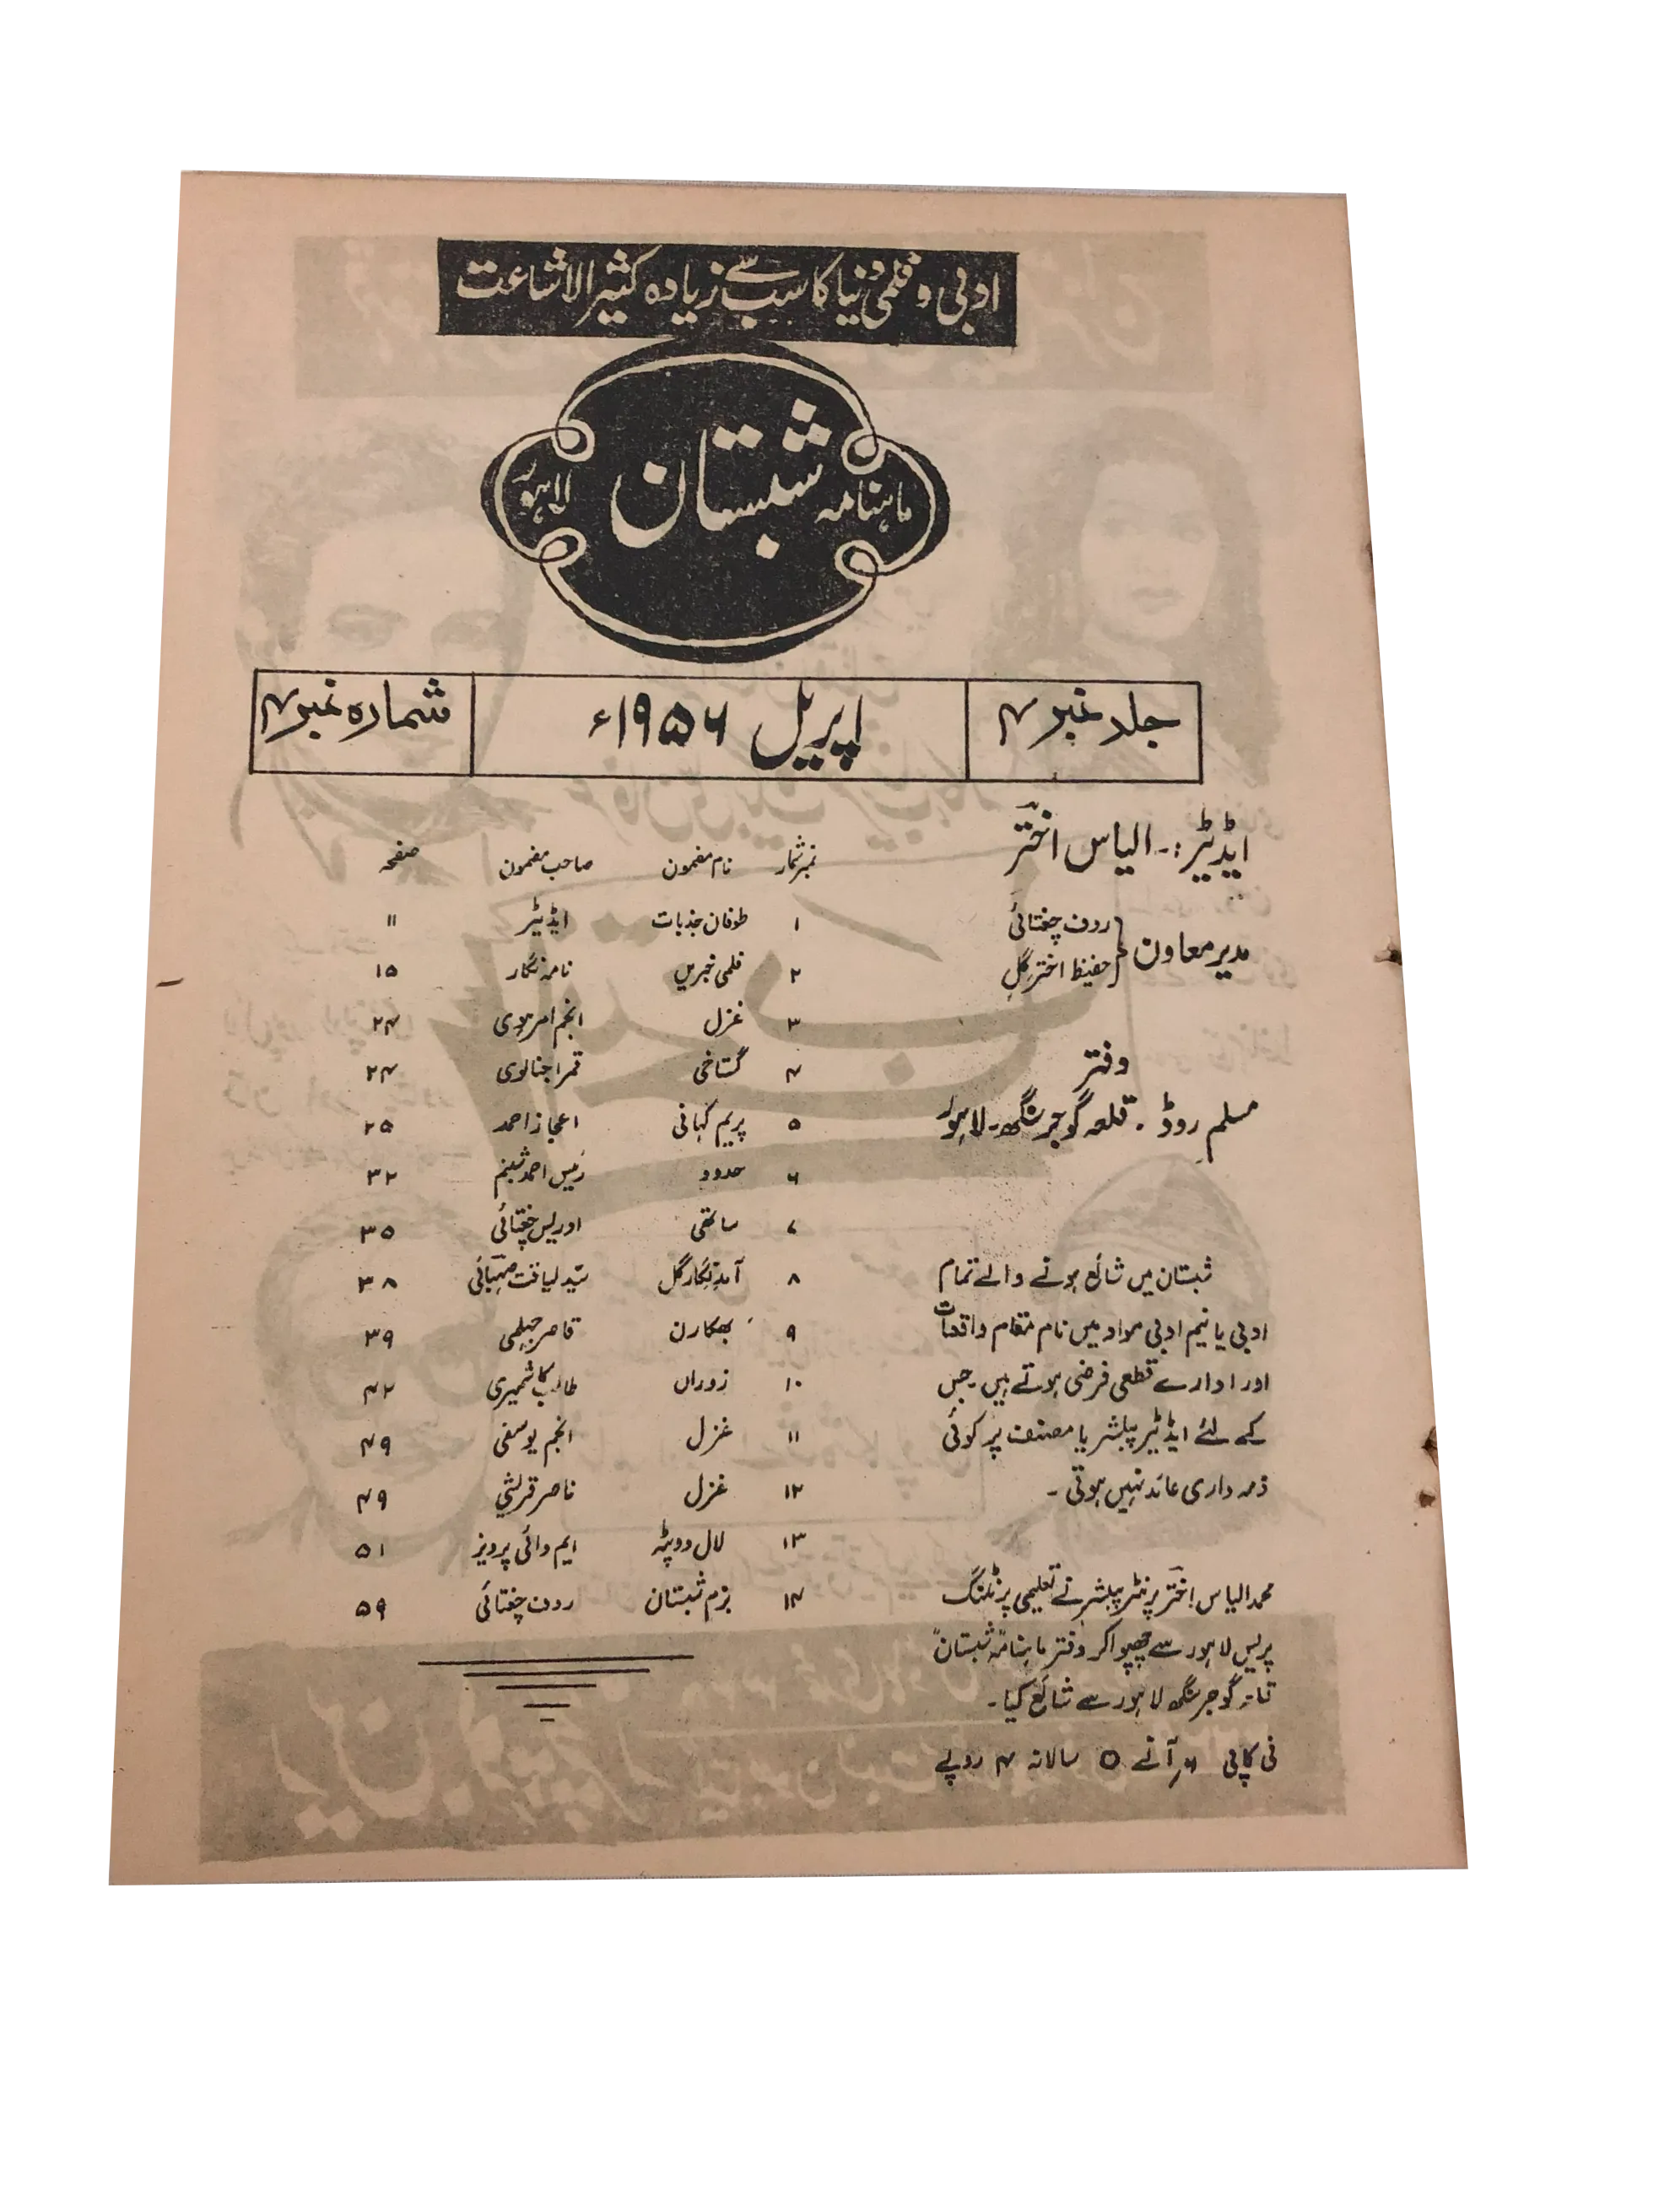 ادبی و فلمی دنیا کا سب سے زیادہ کثیر الاشاعت
ماہنامہ شبستان لاہور
جلد نمبر ۴ اپریل ۱۹۵۶ء شمارہ نمبر ۴
ایڈیٹر:۔ الیاس اختر
مدیر معاون { رؤف چغتائی
حفیظ اختر گل
دفتر
مسلم روڈ ۔ قلعہ گوجر سنگھ۔ لاہور
شبستان میں شائع ہونے والے تمام
ادبی یا نیم ادبی مواد میں نام مقام واقعات
اور ادارے قطعی فرضی ہوتے ہیں۔ جس
کے لئے ایڈیٹر پبلشر یا مصنف پر کوئی
ذمہ داری عائد نہیں ہوتی ۔
محمد الیاس اختر پرنٹر پبلشر نے تعلیمی پرنٹنگ
پریس لاہور سے چھپوا کر دفتر ماہنامہ "شبستان"
قلعہ گوجر سنگھ لاہور سے شائع کیا۔
فی کاپی ۶؍ آنے ۵ سالانہ ۴ روپے
نمبر شمار نام مضمون صاحب مضمون صفحہ
۱ طوفان جذبات ایڈیٹر ۱۱
۲ فلمی خبریں نامہ نگار ۱۵
۳ غزل انجم امرتسری ۲۴
۴ گستاخی قمر اجنالوی ۲۴
۵ پریم کہانی اعجاز احمد ۲۵
۶ حدود رئیس احمد شبنم ۳۲
۷ ساتھی ادریس چغتائی ۳۵
۸ آمد نگار گل سید لیاقت صہبائی ۳۸
۹ بھکارن قاصر جہلمی ۳۹
۱۰ زوراں طالب کاشمیری ۴۲
۱۱ غزل انجم یوسفی ۴۹
۱۲ غزل ناصر قریشی ۴۹
۱۳ لال دوپٹہ ایم وائی پرویز ۵۱
۱۴ بزم شبستان رؤف چغتائی ۵۹